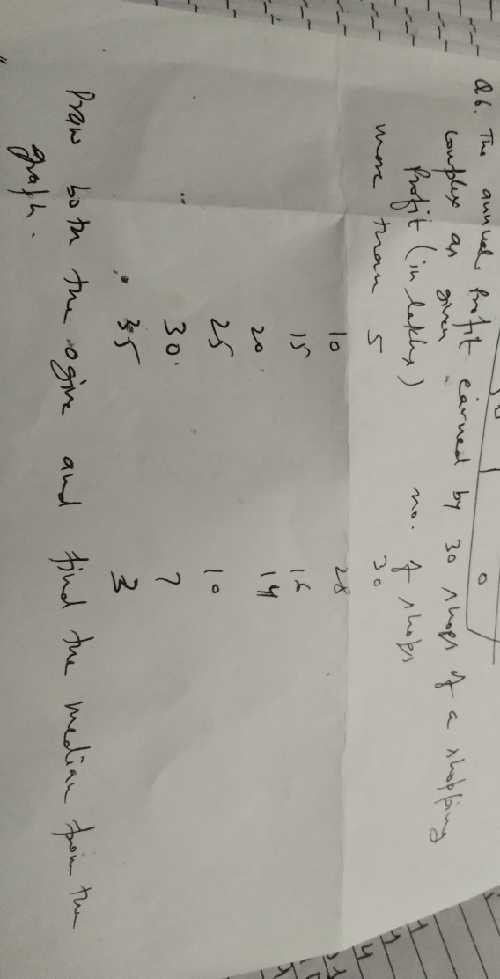 Q6. The annual Profit earned by 30 shops of a shopping
complex as given
Profit (in lakhs) no. of shops
more than 5 30
10 28
15 16
20 14
25 10
30 7
35 3
Draw both the ogive and find the median from the
graph.